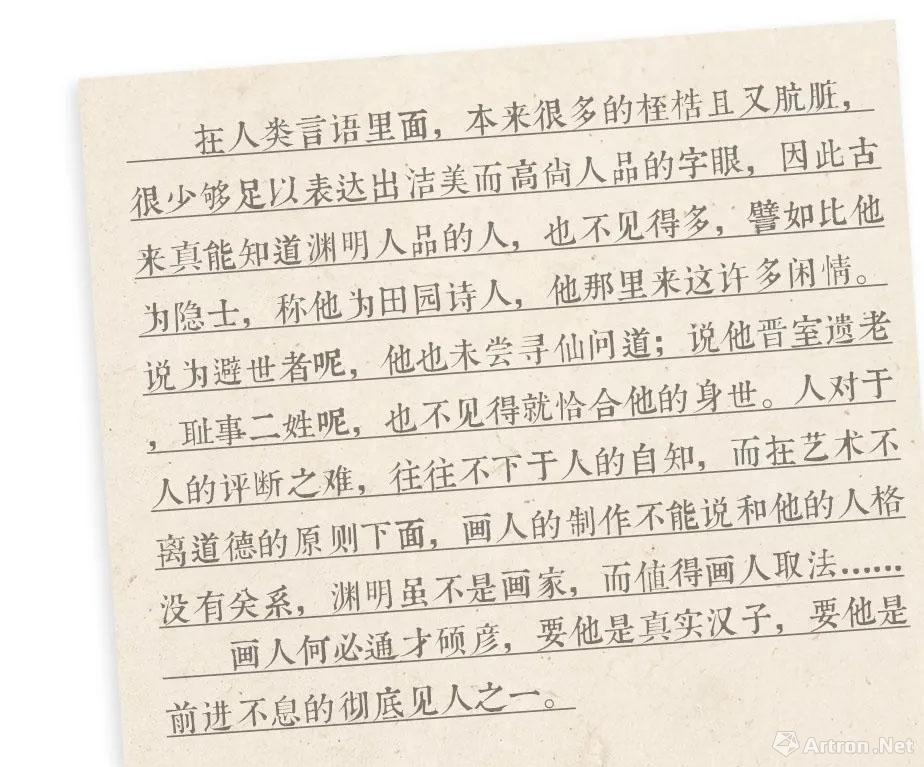 在人类言语里面，本来很多的桎梏且又肮脏，
很少够足以表达出洁美而高尚人品的字眼，因此古
来真能知道渊明人品的人，也不见得多，譬如比他
为隐士，称他为田园诗人，他那里来这许多闲情。
说为避世者呢，他也未尝寻仙问道；说他晋室遗老
，耻事二姓呢，也不见得就恰合他的身世。人对于
人的评断之难，往往不下于人的自知，而在艺术不
离道德的原则下面，画人的制作不能说和他的人格
没有关系，渊明虽不是画家，而值得画人取法……
画人何必通才硕彦，要他是真实汉子，要他是
前进不息的彻底见人之一。
Artron.Net